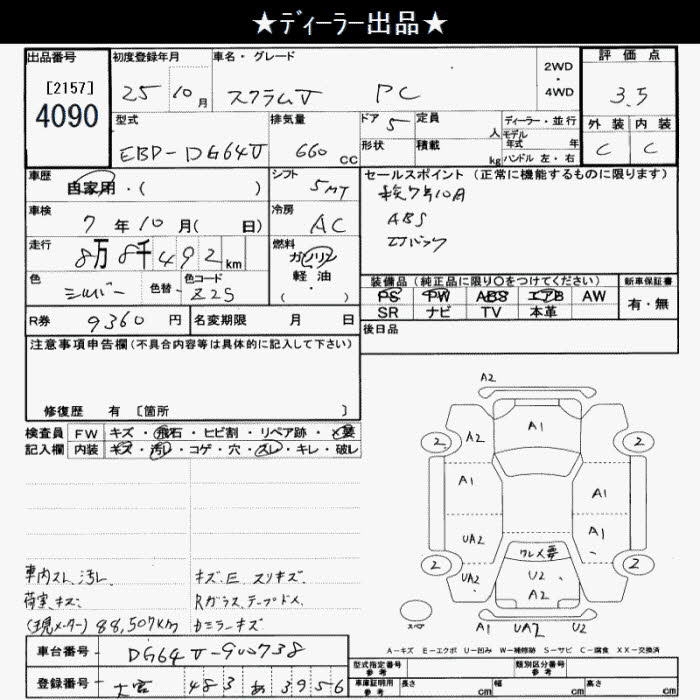 ★ディーラー出品★
出品番号
[2157]
4090
初度登録年月
25 10月
車名・グレード
スクラムV PC
2WD
・
4WD
評価点
3.5
外装 内装
C C
型式
EBD-DG64V
排気量
660 cc
ドア 5
定員 人
形状
積載 kg
ディーラー・並行
モデル
年式 年
ハンドル 左・右
車歴
自家用・( )
シフト
5MT
車検
7年10月( 日)
冷房
AC
走行
8万8千492km
燃料
ガソリン
軽油
( )
色
シルバー
色替
色コード
Z2S
セールスポイント(正常に機能するものに限ります)
車検7年10月
ABS
エアバック
装備品(純正品に限り○をつけてください)
PS PW ABS エアB AW
SR ナビ TV 本革
新車保証書
有・無
R券 9360円
名変期限 月 日
後日品
注意事項申告欄(不具合内容等は具体的に記入して下さい)
修復歴 有 〔箇所 〕
検査員 FW キズ・飛石・ヒビ割・リペア跡・×要
記入欄 内装 キズ・汚レ・コゲ・穴・スレ・キレ・破レ
A2
A1
2 A2 2
A1 A1
UA2 A1
ワレメ要
2 UA2 U2 2
A2
スペア
A1 UA2 U2
車内スレ、汚レ、
荷室、キズ、
(現メーター) 88,507km
キズ、E、スリキズ、
Rガラス、テープドメ、
カミラーキズ
A-キズ E-エクボ U-凹み W-補修跡 S-サビ C-腐食 XX-交換済
車台番号 DG64V-900738
登録番号 大宮 483 あ 3956
型式指定番号
参考
類別区分番号
参考
車庫証明用
参考
長さ cm 幅 cm 高さ cm